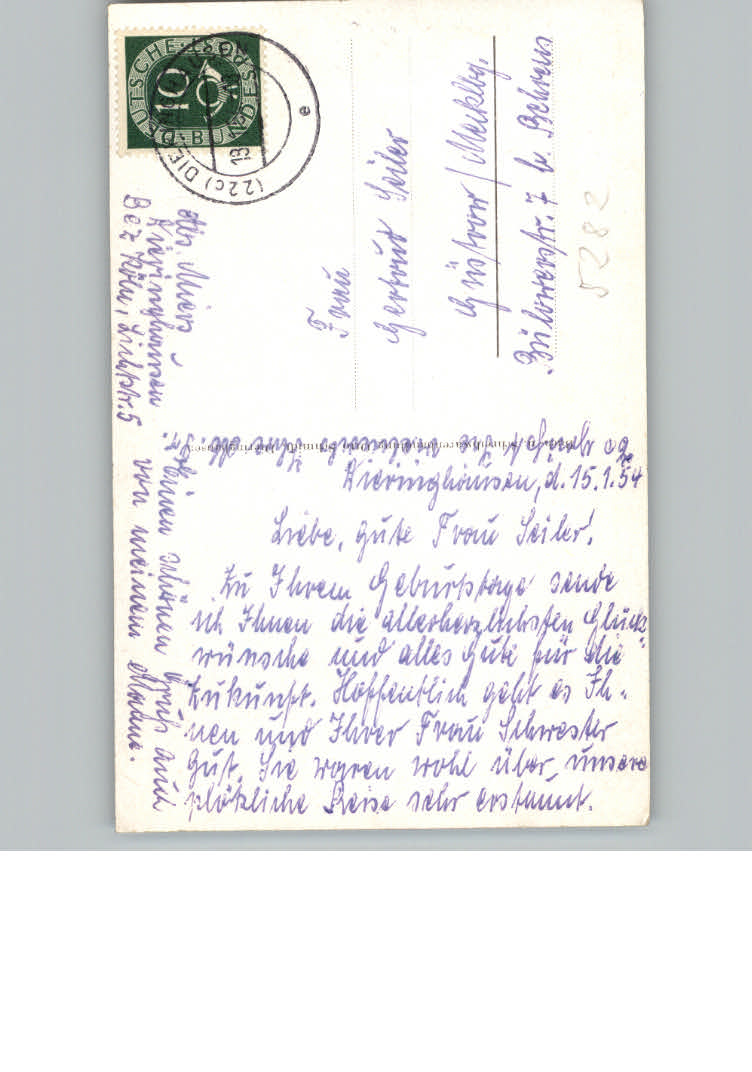 DEUTSCHE BUNDESPOST
10
(22c) DIE
e
Abs. Miers
Dieringhausen
Bez Köln, Lichtstr. 5
Frau
Gertrud Seiler
Güstrow/Mecklbg.
Bülowerstr. 7 b. Behrens
5282
Dieringhausen, d. 15.1.54
Liebe, gute Frau Seiler!
Zu Ihrem Geburtstage sende
ich Ihnen die allerherzlichsten Glück-
wünsche und alles Gute für die
Zukunft. Hoffentlich geht es Ih-
nen und Ihrer Frau Schwester
gut. Sie waren wohl über unsere
plötzliche Reise sehr erstaunt.
Einen schönen Gruß auch
von meinem Manne.